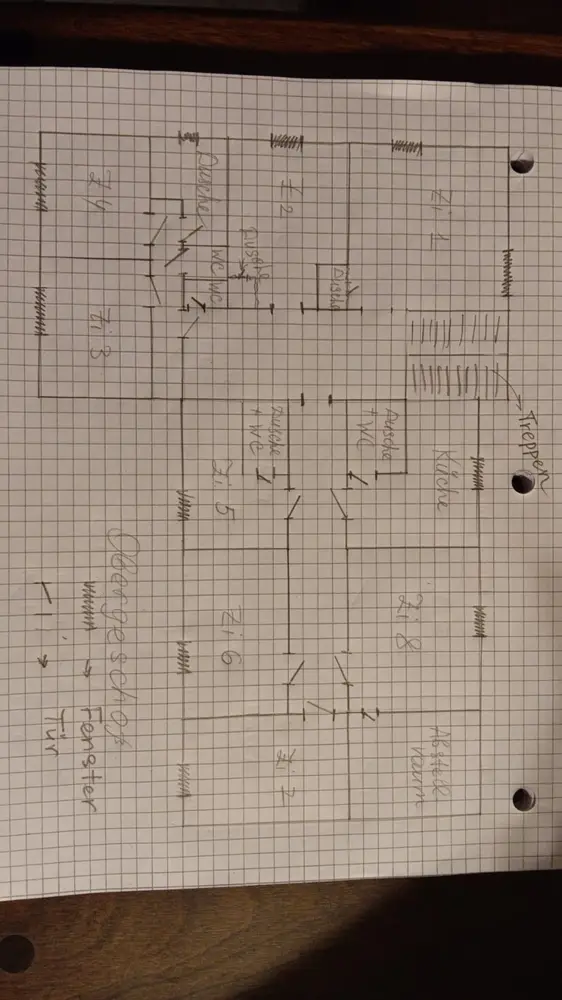 Treppen
Zi 1
Küche
Zi 8
Abstell
raum
Dusche
Dusche
+ WC
Z 2
Zi 7
Dusche
+ WC
Zi 5
Zi 6
Dusche
WC
WC
Z 4
Zi 3
Obergeschoß
→ Fenster
→ Tür